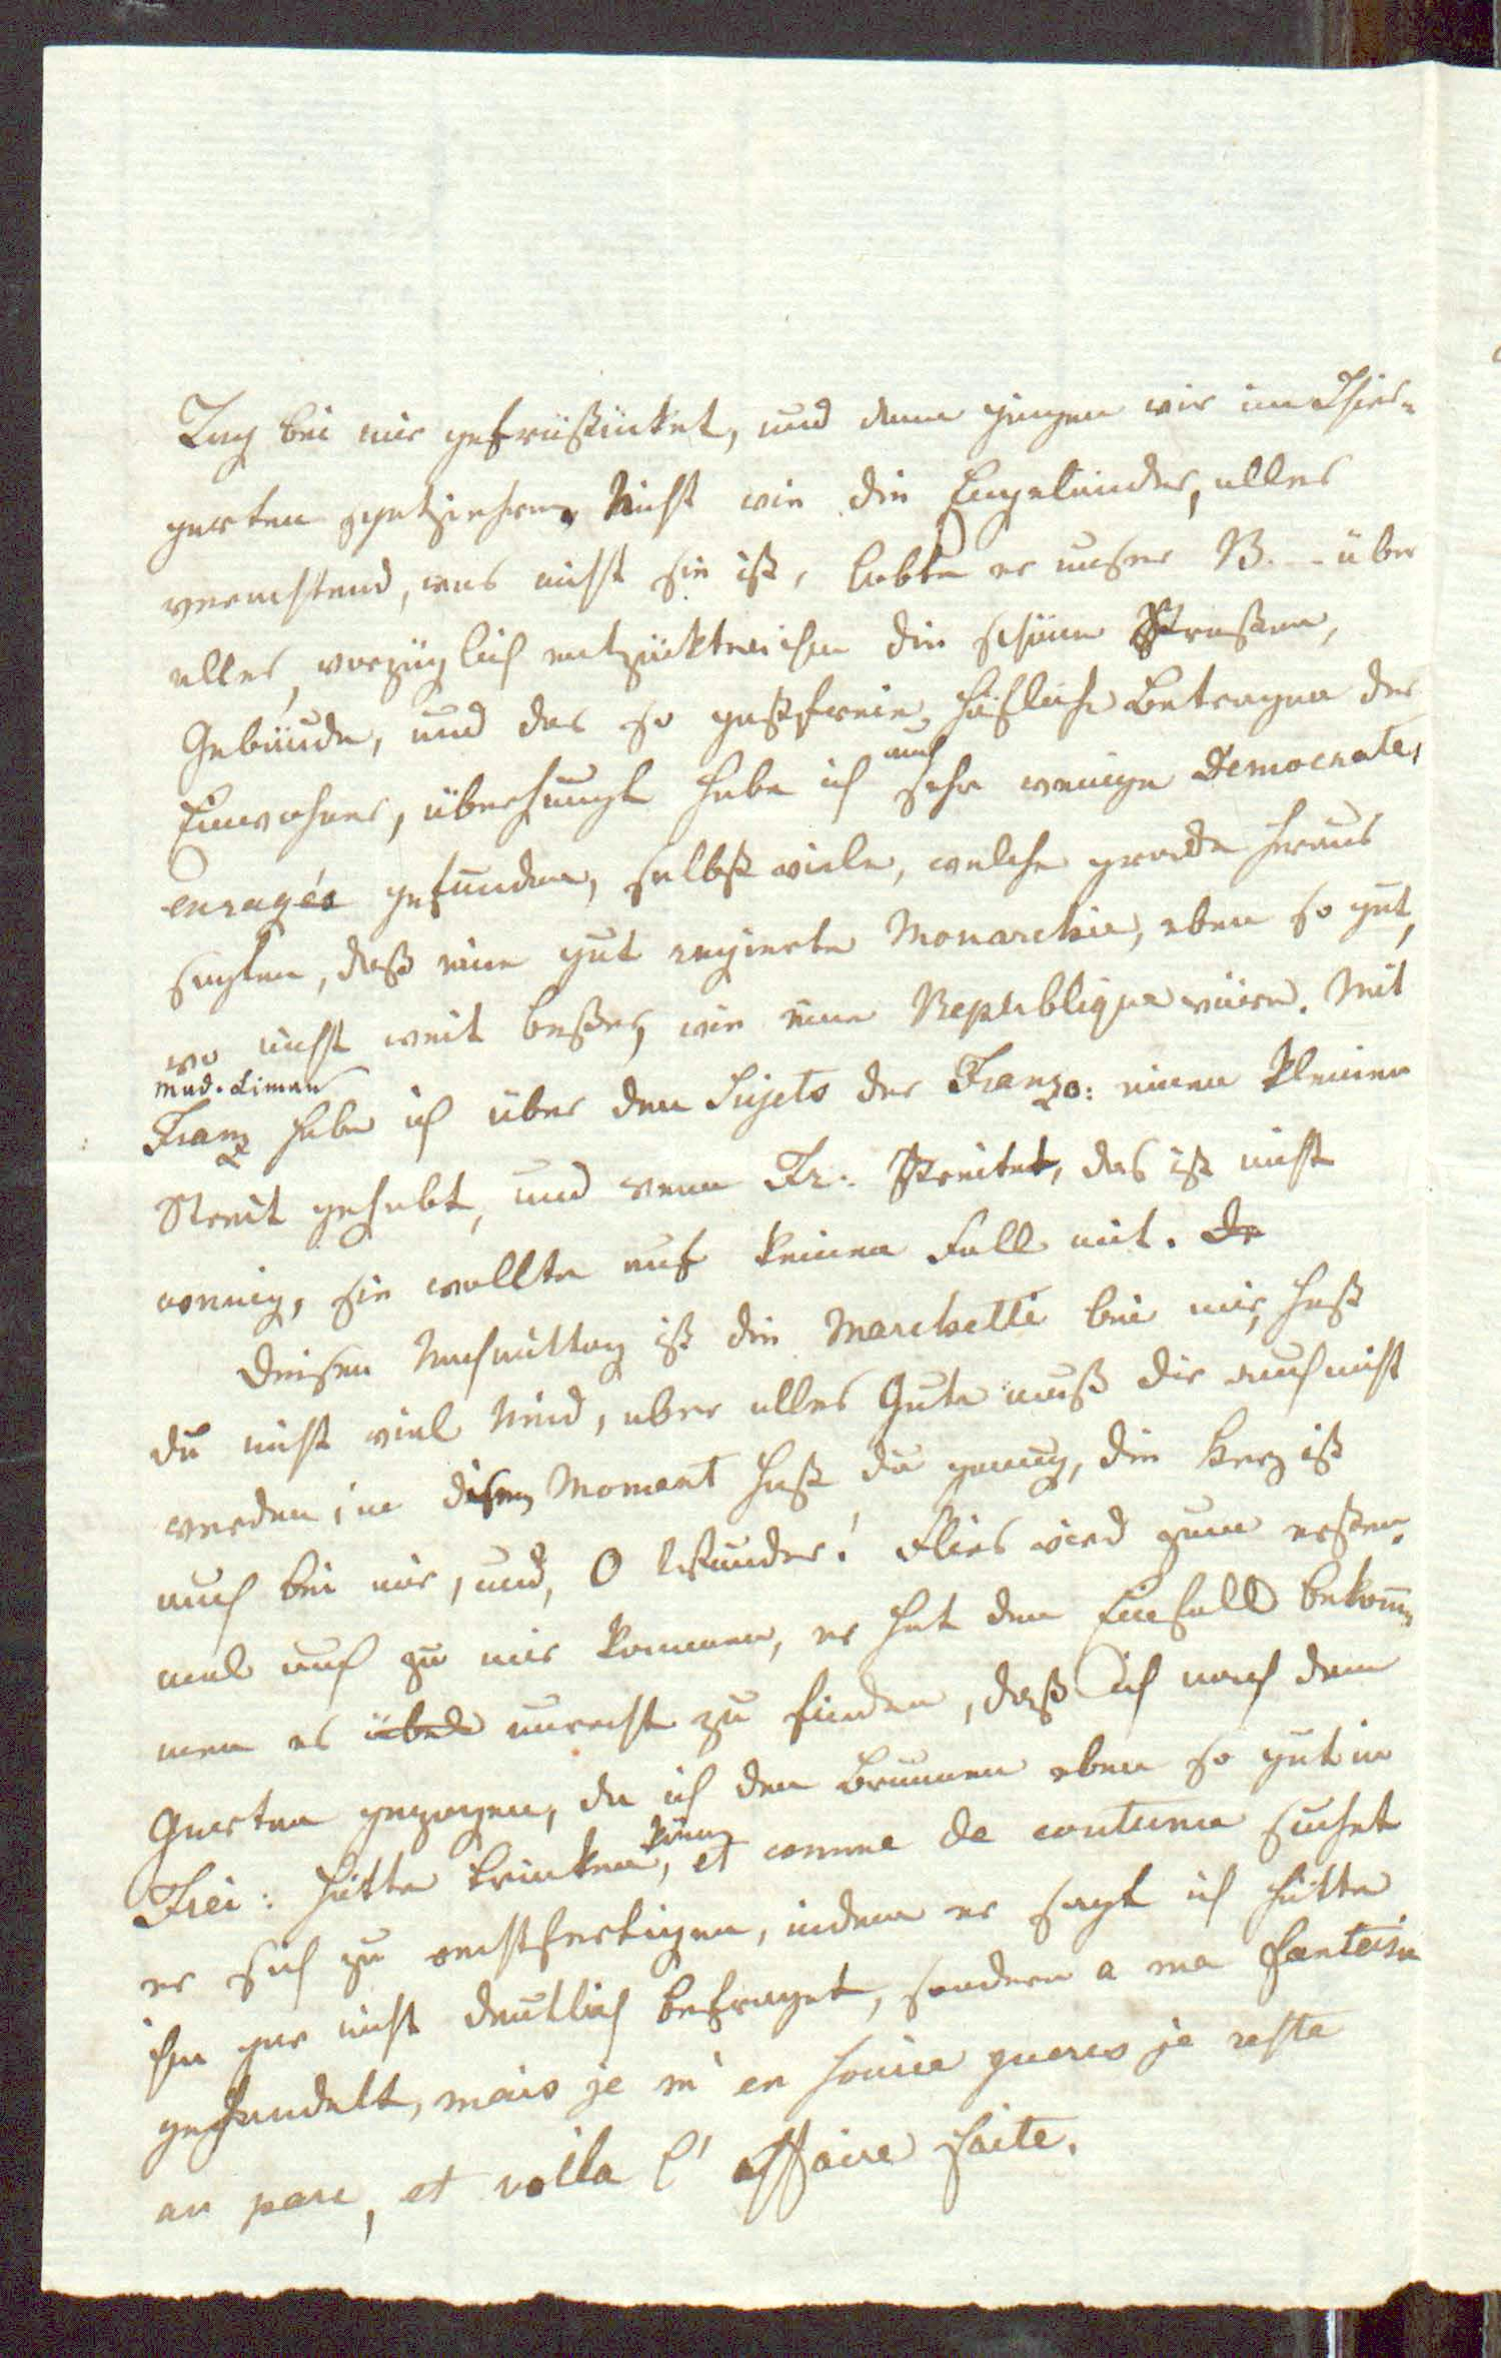 Tag bei mir gefrüstücket, und dann gingen wir im Thier-
garten spatziehren, Nicht wie die Engeländer, alles
verachtend, was nicht sie ist, liebte er unser B. - - über
alles, vorzüglich entzückten ihn die schönen Straßen,
Gebäude, und das so gastfreie, höfliche Betragen der
Einwohner, überhaupt habe ich auch sehr wenige Democrates
enragés gefunden, selbst viele, welche grade heraus
sagten, daß eine gut regierte Monarchie, eben so gut,
wo nicht weit beßer, wie eine Republique wäre. Mit
Mad. Liman
Franz habe ich über den Sujets der Franzo: einen kleinen
Streit gehabt, und wenn Fr: streitet, das ist nicht
wenig, sie wollte auf keinen Fall mit. De
Diesen Nachmittag ist die Marchetti bei mir, hast
du nicht viel Neid, aber alles Gute muß dir auch nicht
werden, in diesen Moment hast du genug, die Herz ist
auch bei mir, und, O Wunder! Flies wird zum ersten
mal auch zu mir kommen, er hat den Einfall bekom̄-
men es übel unrecht zu finden, daß ich nach dem
Garten gezogen, da ich den Brunnen eben so gut in
Frei: hätte trinken könen, et comme de coutume suchet
er sich zu rechtfertigen, indem er sagt ich hätte
ihn gar nicht deutlich befraget, sondern a ma fantaisie
gehandelt, mais je m'en soucie gueres je reste
au parc, et voila l'affaire faite.